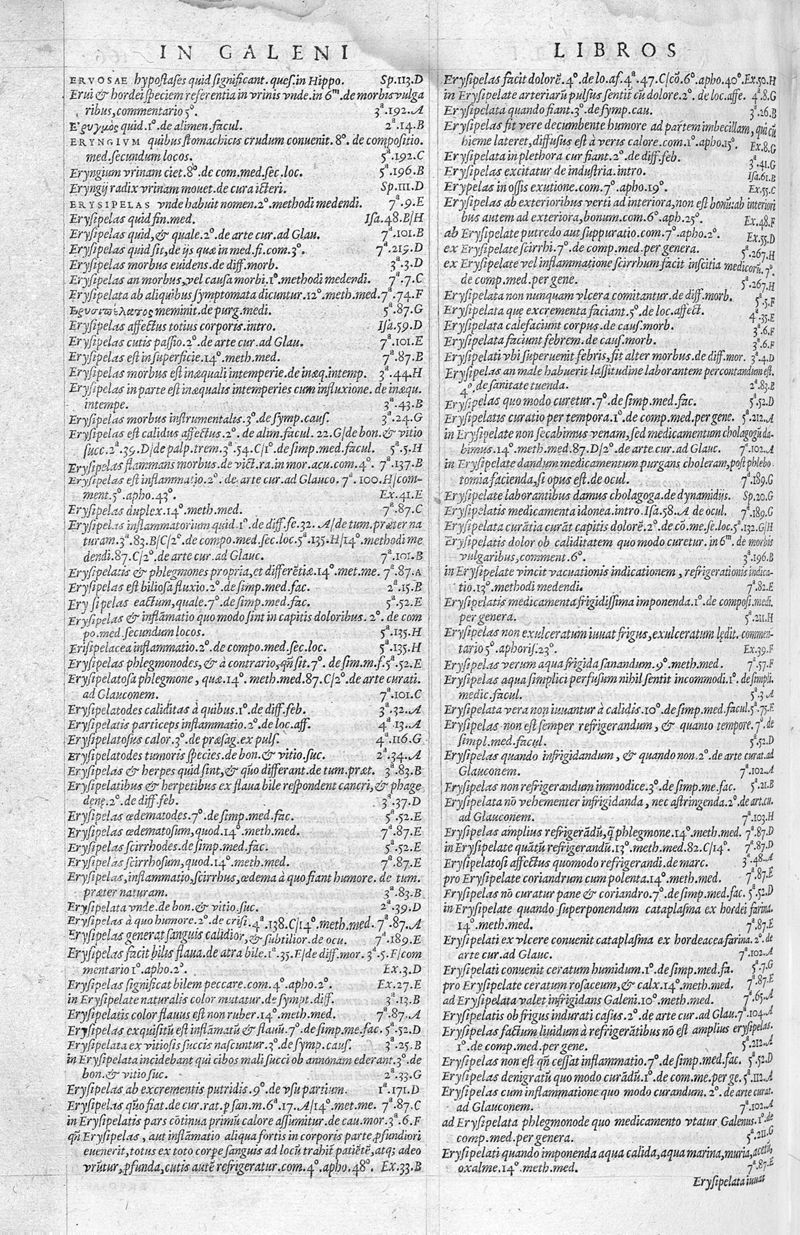 IN GALENI
ERVOSAE hypostases quid significant. ques.in Hippo. Sp.113.D
Erui & hordei speciem referentia in vrinis vnde.in 6m.de morbis vulga
ribus,commentario 5º. 3ª.192.A
quid.1º.de alimen.facul. 2ª.14.B
ERYNGIVM quibus stomachicis crudum conuenit.8º.de compositio.
med.secundum locos. 5ª.192.C
Eryngium vrinam ciet.8º.de com.med.sec.loc. 5ª.196.B
Eryngij radix vrinam mouet.de cura icteri. Sp.111.D
ERYSIPELAS vnde habuit nomen.2º.methodi medendi. 7ª.9.E
Erysipelas quid fin.med. Isa.48.B/H
Erysipelas quid,& quale.2º.de arte cur.ad Glau. 7ª.101.B
Erysipelas quid sit,de ijs quæ in med.fi.com.3º. 7ª.215.D
Erysipelas morbus euidens.de diff.morb. 3ª.3.D
Erysipelas an morbus,vel causa morbi.1º.methodi medendi. 7ª.7.C
Erysipelata ab aliquibus symptomata dicuntur.12º.meth.med.7ª.74.F
meminit.de purg.medi. 5ª.87.G
Erysipelas affectus totius corporis.intro. Isa.59.D
Erysipelas cutis passio.2º.de arte cur.ad Glau. 7ª.101.E
Erysipelas est in superficie.14º.meth.med. 7ª.87.B
Erysipelas morbus est inæquali intemperie.de inæq.intemp. 3ª.44.H
Erysipelas in parte est inæqualis intemperies cum influxione.de inæqu.
intempe. 3ª.43.B
Erysipelas morbus instrumentalis.3º.de symp.caus. 3ª.24.G
Erysipelas est calidus affectus.2º.de alim.facul.22.G/de bon.& vitio
succ.2ª.39.D/de palp.trem.3ª.54.C/1º.de simp.med.facul. 5ª.5.H
Erysipelas flammans morbus.de vict.ra.in mor.acu.com.4º. 7ª.137.B
Erysipelas est inflammatio.2º.de arte cur.ad Glauco. 7ª.100.H/com-
ment.5º.apho.43º. Ex.41.E
Erysipelas duplex.14º.meth.med. 7ª.87.C
Erysipelas inflammatorium quid.1º.de diff.fe.32.A/de tum.præter na
turam.3ª.83.B/C/2º.de compo.med.sec.loc.5ª.135.H/14º.methodi me
dendi.87.C/2º.de arte cur.ad Glauc. 7ª.101.B
Erysipelatis & phlegmones propria,et differētiæ.14º.met.me. 7ª.87.A
Erysipelas est biliosa fluxio.2º.de simp.med.fac. 2ª.15.B
Erysipelas eactum,quale.7º.de simp.med.fac. 5ª.52.E
Erysipelas & inflamatio quo modo sint in capitis doloribus. 2º.de com
po.med.secundum locos. 5ª.135.H
Erisipelacea inflammatio.2º.de compo.med.sec.loc. 5ª.135.H
Erysipelas phlegmonodes,& à contrario,qñ sit.7º.de sim.m.f.5ª.52.E
Erysipelatosa phlegmone, quæ.14º.meth.med.87.C/2º.de arte curati.
ad Glauconem. 7ª.101.C
Erysipelatodes caliditas à quibus.1º.de diff.feb. 3ª.32.A
Erysipelatis particeps inflammatio.2º.de loc.aff. 4ª.13.A
Erysipelatosus calor.3º.de præsag.ex puls. 4ª.116.G
Erysipelatodes tumoris species.de bon.& vitio suc. 2ª.34.A
Erysipelas & herpes quid sint,& quo differant.de tum.præt. 3ª.83.B
Erysipelatibus & herpetibus ex flaua bile respondent cancri,& phage
denę.2º.de diff.feb. 3ª.37.D
Erysipelas œdematodes.7º.de simp.med.fac. 5ª.52.E
Erysipelas œdematosum,quod.14º.meth.med. 7ª.87.E
Erysipelas scirrhodes.de simp.med.fac. 5ª.52.E
Erysipelas scirrhosum,quod.14º.meth.med. 7ª.87.E
Erysipelas,inflammatio,scirrhus,œdema à quo fiant humore. de tum.
præter naturam. 3ª.83.B
Erysipelata vnde.de bon.& vitio.suc. 2ª.39.D
Erysipelas à quo humore.2º.de crisi.4ª.138.C/14º.meth.med. 7ª.87.A
Erysipelas generat sanguis calidior,& subtilior.de ocu. 7ª.189.E
Erysipelas facit bilis flaua.de atra bile.1ª.35.F/de diff.mor. 3ª.5.F/com
mentario 1º.apho.2º. Ex.3.D
Erysipelas significat bilem peccare.com.4º.apho.2º. Ex.27.E
in Erysipelate naturalis color mutatur.de sympt.diff. 3ª.13.B
Erysipelatis color flauus est non ruber.14º.meth.med. 7ª.87.A
Erysipelas exquisitū est inflamatū & flauū.7º.de simp.me.fac.5ª.52.D
Erysipelata ex vitiosis succis nascuntur.3º.de symp.caus. 3ª.25.B
in Erysipelata incidebant qui cibos mali succi ob annonam ederant.3º.de
bon.& vitio suc. 2ª.33.G
Erysipelas ab excrementis putridis.9º.de vsu partium. 1ª.171.D
Erysipelas quo fiat.de cur.rat.p san.m.6ª.17.A/14º.met.me. 7ª.87.C
in Erysipelatis pars cōtinua primū calore assumitur.de cau.mor.3ª.6.F
qñ Erysipelas , aut inflāmatio aliqua fortis in corporis parte pfundiori
euenerit,totus ex toto corpe sanguis ad locū trahit patiētē,atq; adeo
vrūtur,pfunda,cutis autē refrigeratur.com.4º.apho.48º. Ex.33.B
LIBROS
Erysipelas facit dolorē.4º.de lo.af.4ª.47.C/cō.6º.apho.40º.Ex.50.H
in Erysipelate arteriarū pulsus sentit cū dolore.2º.de loc.affe. 4ª.8.G
Erysipelata quando fiant.3º.de symp.cau. 3ª.26.B
Erysipelas fit vere decumbente humore ad partem imbecillam, qui cū
hieme lateret,diffusus est à veris calore.com.1º.apho.15º. Ex.8.G
Erysipelata in plethora cur fiant.2º.de diff.feb. 3ª.41.G
Erysipelas excitatur de industria.intro. Isa.61.B
Erypelas in ossis exutione.com.7º.apho.19º. Ex.55.C
Erysipelas ab exterioribus verti ad interiora,non est bonū:ab interiori
bus autem ad exteriora,bonum.com.6º.aph.25º. Ex.48.F
ab Erysipelate putredo aut suppuratio.com.7º.apho.2º. Ex.55.D
ex Erysipelate scirrhi.7º.de comp.med.per genera. 5ª.267.H
ex Erysipelate vel inflammatione scirrhum facit inscitia medicorū.7º.
de comp.med.per gene. 5ª.267.H
Erysipelata non nunquam vlcera comitantur.de diff.morb. 3ª.5.F
Erysipelata que excrementa faciant.5º.de loc.affect. 4ª.35.E
Erysipelata calefaciunt corpus.de caus.morb. 3ª.6.F
Erysipelata faciunt febrem.de caus.morb. 3ª.6.F
Erysipelati vbi superuenit febris,fit alter morbus.de diff.mor. 3ª.4.D
Erysipelas an male habuerit lassitudine laborantem percontandum est.
4º.de sanitate tuenda. 2ª.83.B
Erysipelas quo modo curetur.7º.de simp.med.fac. 5ª.52.D
Erysipelatis curatio per tempora.1º.de comp.med.per gene. 5ª.212.A
in Erysipelate non secabimus venam,sed medicamentum cholagogū da-
bimus.14º.meth.med.87.D/2º.de arte cur.ad Glauc. 7ª.102.A
in Erysipelate dandum medicamentum purgans choleram,post phlebo
tomia facienda,si opus est.de ocul. 7ª.189.G
Erysipelate laborantibus damus cholagoga.de dynamidijs. Sp.20.G
Erysipelatis medicamenta idonea.intro.Isa.58.A de ocul. 7ª.189.G
Erysipelata curātia curāt capitis dolorē.2º.de cō.me.se.lo.5ª.132.G/H
Erysipelatis dolor ob caliditatem quo modo curetur.in 6m. de morbis
vulgaribus,comment.6º. 3ª.196.B
in Erysipelate vincit vacuationis indicationem , refrigerationis indica-
tio.13º.methodi medendi. 7ª.82.E
Erysipelatis medicamenta frigidissima imponenda.1º.de composi.medi.
per genera. 5ª.211.H
Erysipelas non exulceratum iuuat frigus,exulceratum lędit. commen-
tario 5º.aphoris.23º. Ex.39.F
Erysipelas verum aqua frigida sanandum.9º.meth.med. 7ª.57.F
Erysipelas aqua simplici perfusum nihil sentit incommodi.1º.de simpli.
medic.facul. 5ª.3.A
Erysipelata vera non iuuantur à calidis.10º.de simp.med.facul.5ª.75.E
Erysipelas non est semper refrigerandum , & quanto tempore. 7º.de
simpl.med.facul. 5ª.52.D
Erysipelas quando infrigidandum , & quando non.2º.de arte curat.ad
Glauconem. 7ª.102.A
Erysipelas non refrigerandum immodice.3º.de simp.me.fac. 5ª.21.B
Erysipelata nō vehementer infrigidanda, nec astringenda.2º.de art.cu.
ad Glauconem. 7ª.103.H
Erysipelas amplius refrigerādū,q̃ phlegmone.14º.meth.med. 7ª.87.D
in Erysipelate quātū refrigerandū.13º.meth.med.82.C/14º. 7ª.87.D
Erysipelatosi affectus quomodo refrigerandi.de marc. 3ª.48.A
pro Erysipelate coriandrum cum polenta.14º.meth.med. 7ª.87.E
Erysipelas nō curatur pane & coriandro.7º.de simp.med.fac. 5ª.52.D
in Erysipelate quando superponendum cataplasma ex hordei farina.
14º.meth.med. 7ª.87.E
Erysipelati ex vlcere conuenit cataplasma ex hordeacea farina. 2º.de
arte cur.ad Glauc. 7ª.102.A
Erysipelati conuenit ceratum humidum.1º.de simp.med.fa. 5ª.7.G
pro Erysipelate ceratum rosaceum,& calx.14º.meth.med. 7ª.87.E
ad Erysipelata valet infrigidans Galeni.10º.meth.med. 7ª.65.A
Erysipelatis ob frigus indurati casus.2º.de arte cur.ad Glau.7ª.104.A
Erysipelas factum liuidum à refrigerātibus nō est amplius erysipelas.
1º.de comp.med.per gene. 5ª.212.A
Erysipelas non est qñ cessat inflammatio.7º.de simp.med.fac. 5ª.52.D
Erysipelas denigratū quo modo curādū.1º.de com.me.per ge. 5ª.212.A
Erysipelas cum inflammatione quo modo curandum. 2º.de arte curat.
ad Glauconem. 7ª.102.A
ad Erysipelata phlegmonode quo medicamento vtatur Galenus.1º.de
comp.med.per genera. 5ª.211.G
Erysipelati quando imponenda aqua calida,aqua marina,muria,aceto,
oxalme.14º.meth.med. 7ª.87.E
Erysipelata iuuat